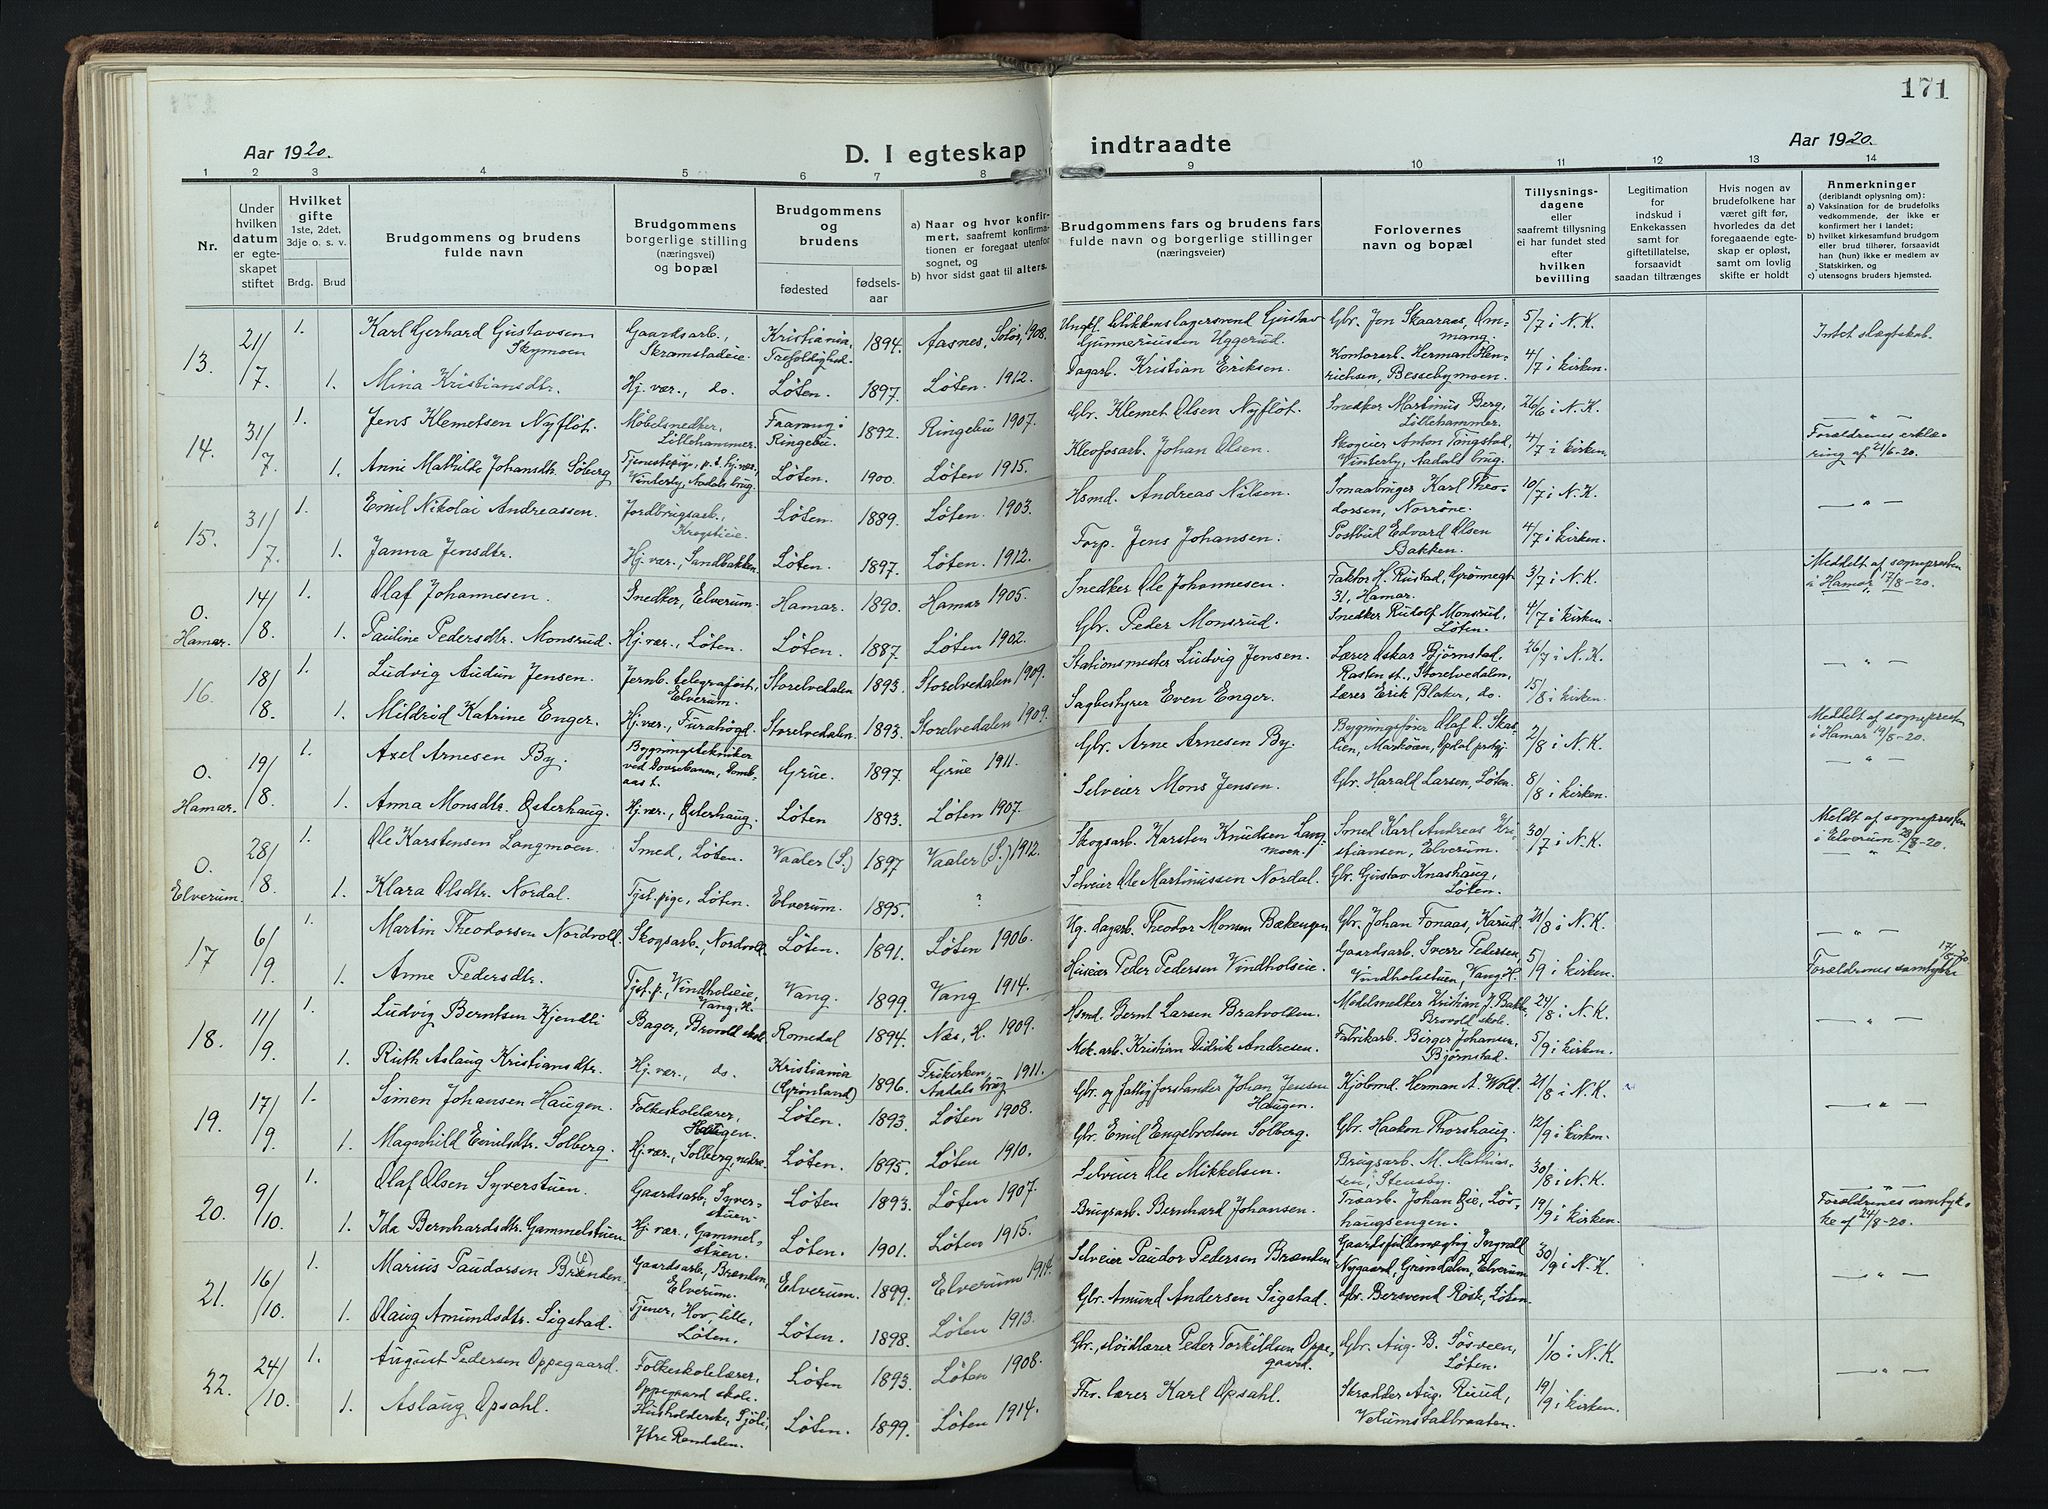 171
Aar 1920.
D. I egteskap indtraadte
Aar 1920.
1 2 3 4 5 6 7 8 9 10 11 12 13 14
Nr.
Under hvilken datum er egteskapet stiftet
Hvilket gifte 1ste, 2det, 3dje o. s. v.
Brdg. Brud
Brudgommens og brudens fulde navn
Brudgommens borgerlige stilling (næringsvei) og bopæl
Brudgommens og brudens
fødested
fødselsaar
a) Naar og hvor konfirmert, saafremt konfirmationen er foregaat utenfor sognet, og
b) hvor sidst gaat til alters.
Brudgommens fars og brudens fars fulde navn og borgerlige stillinger (næringsveier)
Forlovernes navn og bopæl
Tillysningsdagene eller saafremt tillysning ei har fundet sted efter hvilken bevilling
Legitimation for indskud i Enkekassen samt for giftetillatelse, forsaavidt saadan tiltrænges
Hvis nogen av brudefolkene har været gift før, hvorledes da det foregaaende egteskap er opløst, samt om lovlig skifte er holdt
Anmerkninger (deriblandt oplysning om):
a) Vaksination for de brudefolks vedkommende, der ikke er konfirmert her i landet;
b) hvilket kirkesamfund brudgom eller brud tilhører, forsaavidt han (hun) ikke er medlem av Statskirken, og
c) utensogns bruders hjemsted.
13. 21/7 1. Karl Gerhard Gustavsen Skymoen Gaardsarb., Skramstadeie. Kristiania, Trefoldighed. 1894. Aasnes, Solør, 1908. Ungkl. Blikkenslagersvend Gustav Gunneriussen Uggerud. Gbr. Jon Skaaraas, Ommang. 5/7 i N.K. Intet slægtskab.
1. Mina Kristiansdtr. Hj. vær., do. Løten. 1897. Løten. 1912. Dagarb. Kristian Eriksen. Kontorarb. Herman Henrichsen, Bessebymoen. 4/7 i kirken.
14. 31/7 1. Jens Klemetsen Nyfløt. Møbelsnedker, Lillehammer. Faavang i Ringebu. 1892. Ringebu 1907. Gbr. Klemet Olsen Nyfløt. Snedker Martinus Berg, Lillehammer. 26/6 i N.K. — " —
1. Anne Mathilde Johansdtr. Søberg Tjenestepige, p.t. hj. vær., Vinterby, Aadals brug. Løten. 1900. Løten 1915. Kleofosarb. Johan Olsen. Skogeier Anton Tingstad, Vinterby, Aadals brug. 4/7 i kirken. Forældrenes erklæring af 21/6-20.
15. 31/7 1. Emil Nikolai Andreassen. Jordbrugsarb., Krogstieie. Løten. 1889. Løten. 1903. Hsmd. Andreas Nilsen. Smaabruger Karl Theodorsen, Norrøne. 10/7 i N.K. — " —
1. Janna Jensdtr. Hj. vær., Sandbakken. Løten. 1897. Løten. 1912. Forp. Jens Johansen. Postbud Edvard Olsen Bakken. 4/7 i kirken.
0. Hamar. 14/8 1. Olaf Johannesen. Snedker, Elverum. Hamar. 1890. Hamar 1905. Snedker Ole Johannesen. Faktor H. Rustad, Grønnegt 31, Hamar. 3/7 i N.K. Meddelt af sognepresten i Hamar 17/8-20.
1. Pauline Pedersdtr. Monsrud. Hj. vær., Løten. Løten. 1887. Løten 1902. Gbr. Peder Monsrud. Snedker Rudolf Monsrud, Løten. 4/7 i kirken.
16. 18/8 1. Ludvig Audun Jensen. Jernb. telegrafist, Elverum. Storelvedalen 1893. Storelvedalen 1909. Stationsmester Ludvig Jensen. Lærer Oskar Bjørnstad, Rasten st., Storelvedalen, 26/7 i N.K. — " —
1. Mildrid Katrine Enger. Hj. vær., Furuhøgd. Storelvedalen. 1893. Storelvedalen 1909. Sagbestyrer Even Enger. Lærer Erik Blaker, do. 15/8 i kirken.
0. Hamar. 19/8 1. Axel Arnesen By. Bygningstekniker ved Dovrebanen, Dombaas t. Grue. 1897. Grue 1911. Gbr. Arne Arnesen By. Bygningsfører Olaf O. Skaslien, Markøan, Opdal prstgj. 2/8 i N.K. Meddelt af sognepresten i Hamar 19/8-20. — " —
1. Anna Monsdtr. Østerhaug. Hj. vær., Østerhaug. Løten 1893. Løten 1907. Selveier Mons Jensen. Gbr. Harald Larsen, Løten. 8/8 i kirken.
0. Elverum. 28/8 1. Ole Karstensen Langmoen. Smed, Løten. Vaaler (S.) 1897 Vaaler (S.) 1912. Skogsarb. Karsten Knudsen Langmoen. Smed Karl Andreas Kristiansen, Elverum. 30/7 i N.K. Meldt af sognepresten i Elverum 28/8-20. — " —
1. Klara Olsdtr. Nordal. Tjst. pige, Løten. Elverum. 1895. ? Selveier Ole Martinussen Nordal. Gbr. Gustav Knashaug, Løten.
17. 6/9 1. Martin Theodorsen Nordvoll. Skogsarb., Nordvoll. Løten. 1891. Løten 1906. Ug. dagarb. Theodor Monsen Bækengen Gbr. Johan Fonaas, Karud. 21/8 i N.K. — " —
1. Anne Pedersdtr. Tjst. p., Vindholseie, Vang, H. Vang. 1899. Vang 1914. Huseier Peder Pedersen Vindholseie. Gaardsarb. Sverre Pedersen, Vindholsetuen, Vang H. 5/9 i kirken. Forældrenes samtykke 17/8-20
18. 11/9 1. Ludvig Berntsen Kjendli Bager, Brovold skole Romedal 1894. Næs, H. 1909. Hsmd. Bernt Larsen Bratvolden. Modelsnedker Kristian J. Bakke, Brovold skole. 24/8 i N.K. — " —
1. Ruth Aslaug Kristiansdtr. Hj. vær., do. Kristiania (Grønland) 1896. Frikirken, Aadals brug 1911. Mek. arb. Kristian Didrik Andresen. Fabrikarb. Birger Johansen, Bjørnstad. 5/9 i kirken.
19. 17/9 1. Simen Johansen Haugen. Folkeskolelærer, Haugen. Løten. 1893. Løten 1908. Gbr. og fattigforstander Johan Jensen Haugen. Kjøbmd. Herman A. Wold. 21/8 i N.K. — " —
1. Magnhild Emilsdtr. Solberg. Hj. vær., Solberg, nedre. Løten. 1895. Løten 1910. Gbr. Emil Engebretsen Solberg. Gbr. Haakon Thorshaug. 12/9 i kirken.
20. 9/10. 1. Olaf Olsen Syverstuen. Gaardsarb., Syverstuen. Løten 1893. Løten 1907. Selveier Ole Mikkelsen. Brugsarb. M. Mathiassen, Stensby. 30/8 i N.K. — " —
1. Ida Bernhardsdtr. Gammelstuen. Hj. vær., Gammelstuen. Løten. 1901. Løten 1915. Brugsarb. Bernhard Johansen. Træarb. Johan Øie, Løvhaugsengen. 19/9 i kirken. Forældrenes samtykke af 24/8-20.
21. 16/10. 1. Marius Paudorsen Brænden. (e) Gaardsarb., Brænden, Elverum. Elverum. 1899. Elverum 1914. Selveier Paudor Pedersen Brænden Gaardsfuldmægtig Ingvald Nygaard, Grindalen, Elverum 30/9 i N.K. — " —
1. Olaug Amundsdtr. Sigstad. Tjener, Hov, lille, Løten. Løten. 1898. Løten 1913. Gbr. Amund Andersen Sigstad. Gbr. Bersvend Rosk, Løten.
22. 24/10. 1. August Pedersen Oppegaard. Folkeskolelærer, Oppegaard skole. Løten 1893. Løten 1908. Gbr., sløidlærer Peder Torkildsen Oppegaard. Gbr. Aug. B. Søsveen, Løten. 1/10 i N.K. — " —
1. Aslaug Opsahl. Husholderske, Sjøli, Ytre Rendalen. Løten. 1899. Løten 1914. Fhv. lærer Karl Opsahl. Skrædder Aug. Ruud, Vetumstadbraaten. 19/9 i kirken.